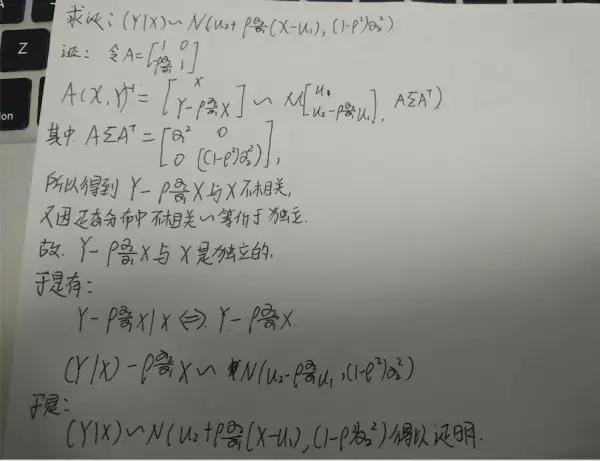 求证: (Y|X) ~ N(u₂ + ρσ₂/σ₁(X-u₁), (1-ρ²)σ₂²)
证: 令A = [1 0; -ρσ₂/σ₁ 1]
A(X,Y)ᵀ = [X; Y-ρσ₂/σ₁X] ~ N([u₁; u₂-ρσ₂/σ₁u₁], AΣAᵀ)
其中 AΣAᵀ = [σ₁² 0; 0 (1-ρ²)σ₂²],
所以得到 Y-ρσ₂/σ₁X 与 X 不相关,
又因正态分布中不相关~等价于独立.
故. Y-ρσ₂/σ₁X 与 X 是独立的,
于是有:
Y-ρσ₂/σ₁X|X ⇔ Y-ρσ₂/σ₁X.
(Y|X)-ρσ₂/σ₁X ~ N(u₂-ρσ₂/σ₁u₁, (1-ρ²)σ₂²)
于是:
(Y|X) ~ N(u₂+ρσ₂/σ₁(X-u₁), (1-ρ²)σ₂²) 得以证明.
Z
X